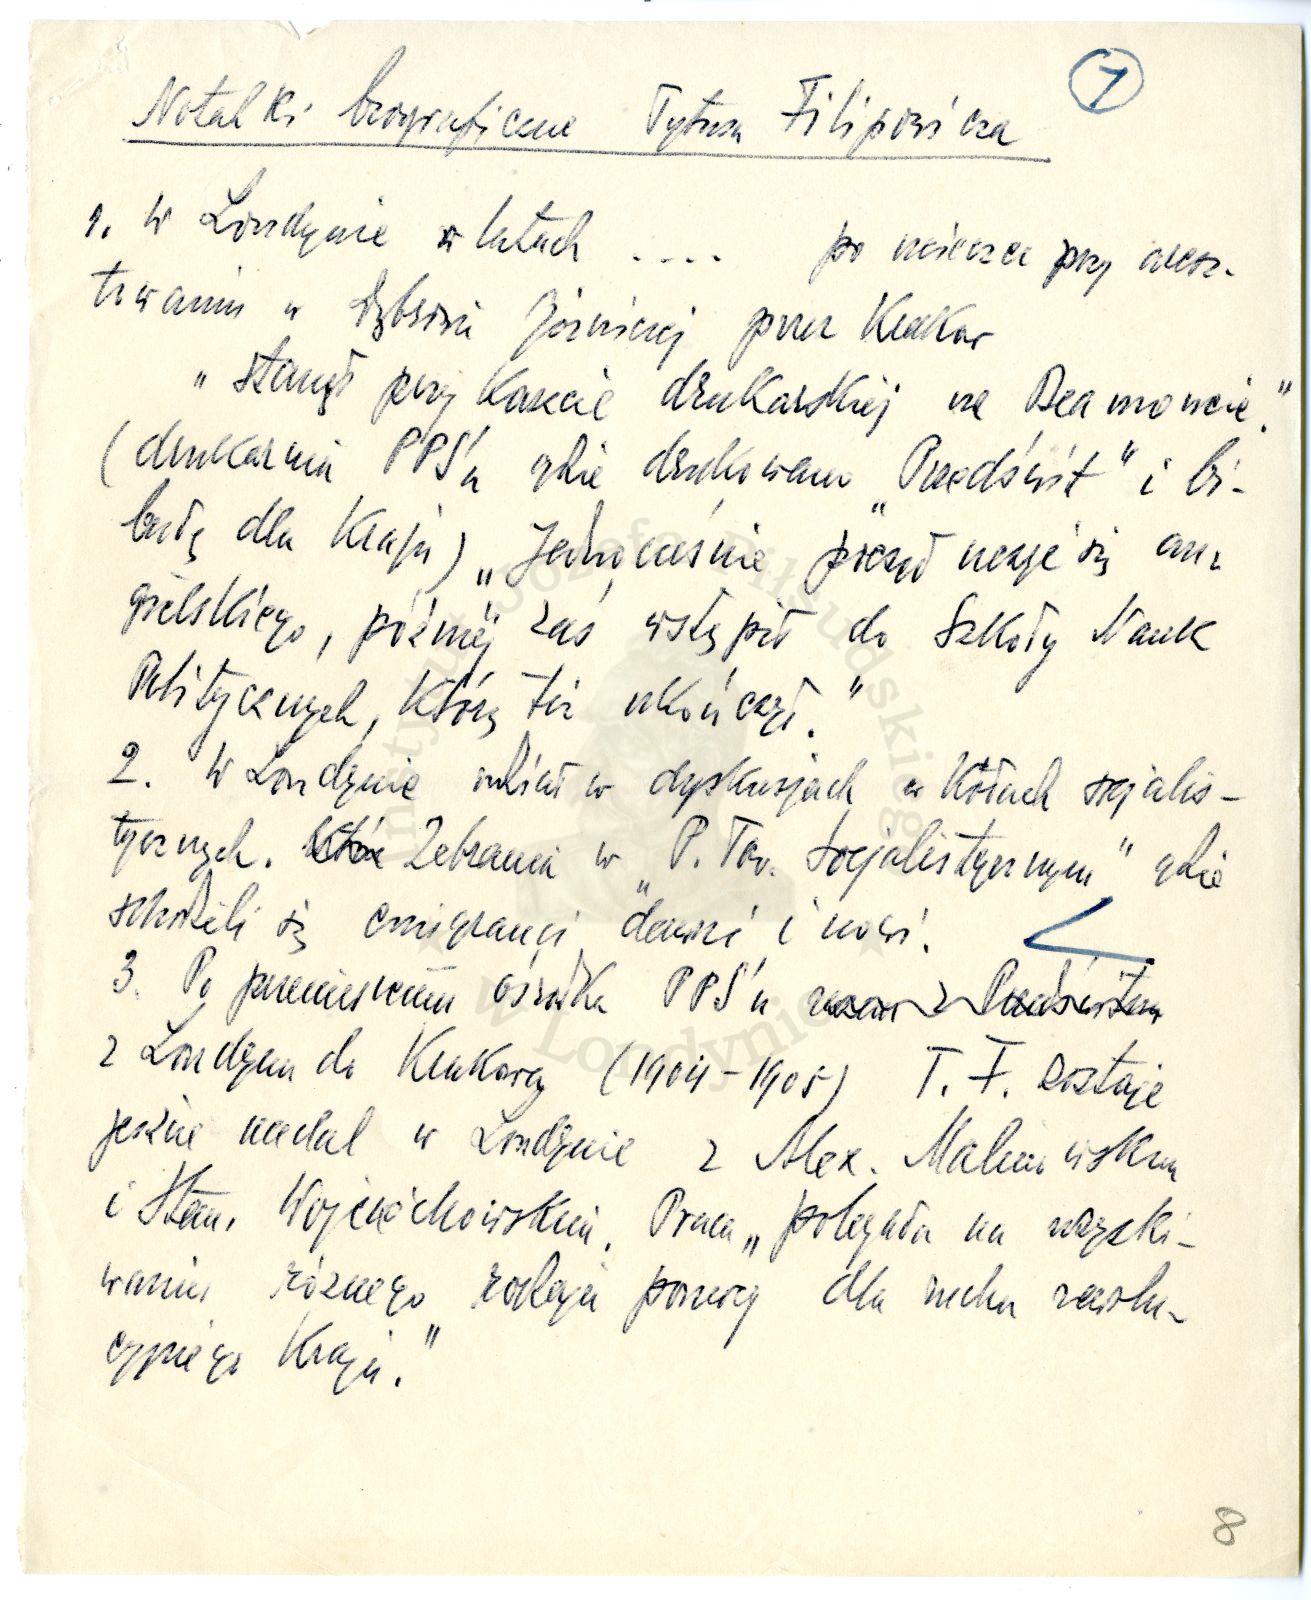 1
Notatki biograficzne Tytusa Filipowicza
1. W Londynie w latach .... po ucieczce przy aresz-
towaniu w Dąbrowie Górniczej przez Kraków
"stanął przy kaszcie drukarskiej na Beamoncie."
(drukarnia PPS'u gdzie drukowano "Przedświt" i bi-
bułę dla Kraju) "Jednocześnie począł uczyć się an-
gielskiego, później zaś wstąpił do Szkoły Nauk
Politycznych, którą też ukończył."
2. W Londynie udział w dyskusjach w kołach socjalis-
tycznych. Zebrania w "P. Tow. Socjalistycznym" gdzie
schodzili się emigranci dawni i nowi.
3. Po przeniesieniu ośrodka PPS'u razem z Przedświtem
z Londynu do Krakowa (1904-1905) T. F. zostaje
jeszcze nadal w Londynie z Alex. Malinowskim
i Stan. Wojciechowskim. Praca "polegała na uzyski-
waniu różnego rodzaju pomocy dla ruchu rewolu-
cyjnego Kraju."
8
Instytut Józefa Piłsudskiego
w Londynie